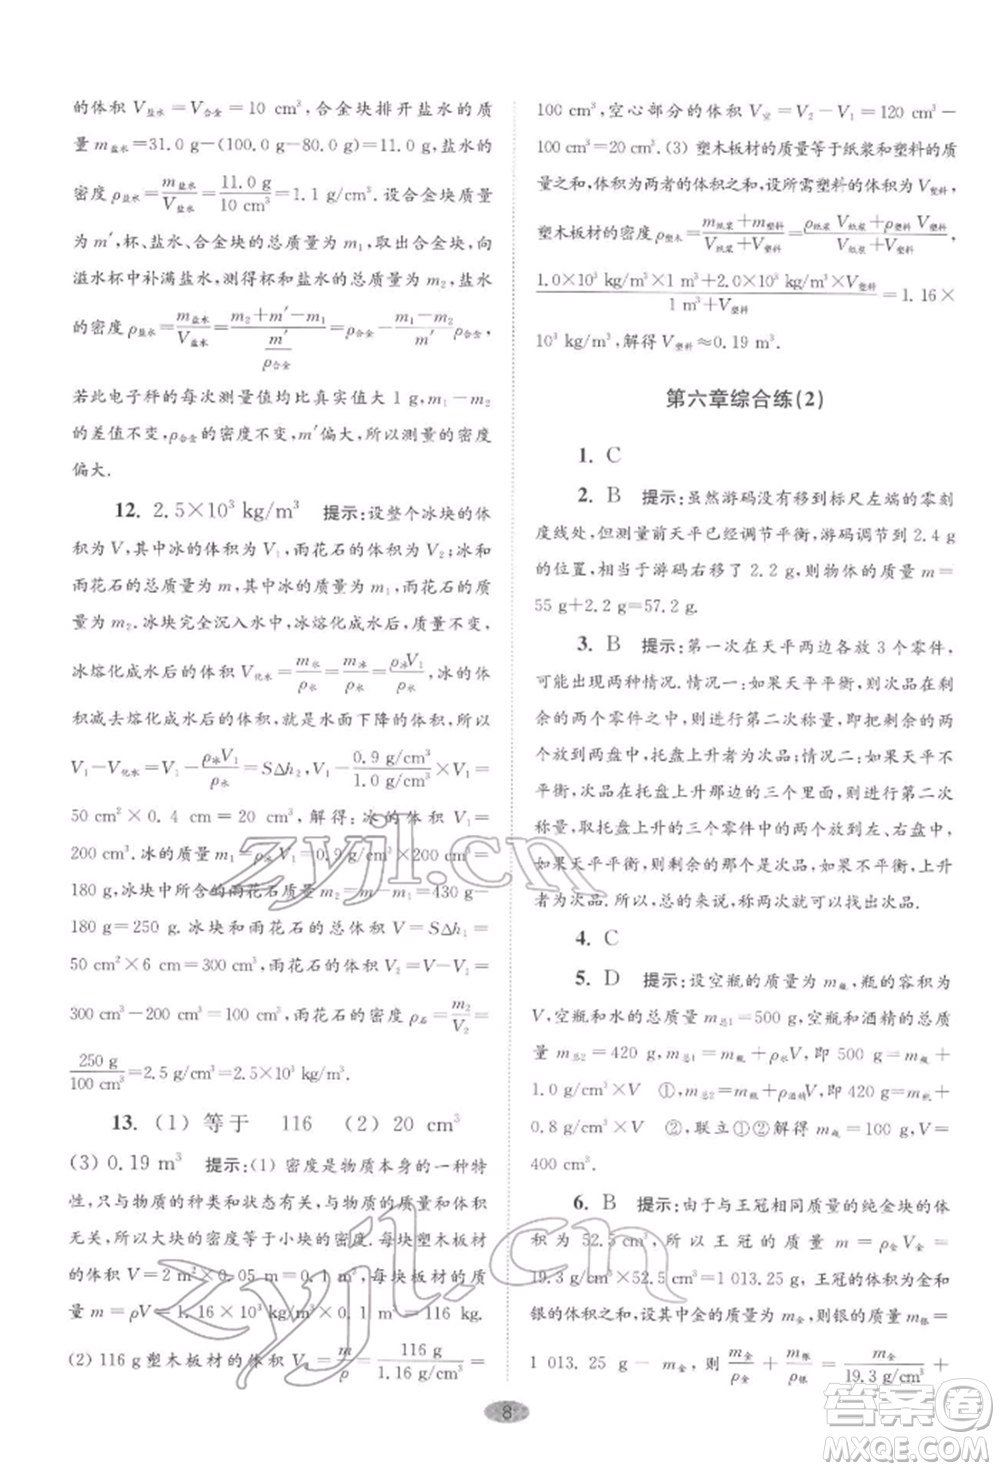 的体积 V盐水=V合金=10 cm³,合金块排开盐水的质
量 m盐水=31.0 g-(100.0 g-80.0 g)=11.0 g,盐水
的密度 ρ盐水=m盐水/V盐水=11.0 g/10 cm³=1.1 g/cm³.设合金块质量
为 m′,杯、盐水、合金块的总质量为 m₁,取出合金块,向
溢水杯中补满盐水,测得杯和盐水的总质量为 m₂,盐水
的密度 ρ盐水=m盐水/V盐水=(m₂+m′-m₁)/(m′/ρ合金)=ρ合金-(m₁-m₂)/m′ρ合金,
若此电子秤的每次测量值均比真实值偏大,则 m₁-m₂
的差值不变,ρ合金的密度不变,m′偏大,所以测量的密度
偏大.
12. 2.5×10³ kg/m³ 提示:设整个冰块的体
积为 V,其中冰的体积为 V₁,雨花石的体积为 V₂;冰和
雨花石的总质量为 m,其中冰的质量为 m₁,雨花石的质
量为 m₂.冰块完全沉入水中,冰熔化成水后,质量不变,
冰熔化成水后的体积 V化水=m水/ρ水=m冰/ρ水=ρ冰V₁/ρ水,冰的体
积减去熔化成水后的体积,就是水面下降的体积,所以
V₁-V化水=V₁-ρ冰V₁/ρ水=SΔh₂,V₁-0.9 g/cm³/1.0 g/cm³×V₁=
50 cm²×0.4 cm=20 cm³,解得:冰的体积 V₁=
200 cm³.冰的质量 m₁=ρ冰V₁=0.9 g/cm³×200 cm³=
180 g,冰块中所含的雨花石质量 m₂=m-m₁=430 g-
180 g=250 g.冰块和雨花石的总体积 V=SΔh₁=
50 cm²×6 cm=300 cm³,雨花石的体积 V₂=V-V₁=
300 cm³-200 cm³=100 cm³,雨花石的密度 ρ石=m₂/V₂=
250 g/100 cm³=2.5 g/cm³=2.5×10³ kg/m³.
13. (1) 等于 116 (2) 20 cm³
(3) 0.19 m³ 提示:(1) 密度是物质本身的一种特
性,只与物质的种类和状态有关,与物质的质量和体积
无关,所以大块的密度等于小块的密度.每块塑木板材
的体积 V=2 m²×0.05 m=0.1 m³,每块板材的质
量 m=ρV=1.16×10³ kg/m³×0.1 m³=116 kg.
(2) 116 g塑木板材的体积 V₁=m/ρ=116 g/1.16 g/cm³=
100 cm³,空心部分的体积 V空=V₂-V₁=120 cm³-
100 cm³=20 cm³.(3) 塑木板材的质量等于纸浆和塑料的质
量之和,体积为两者的体积之和,设所需塑料的体积为 V塑料,
塑木板材的密度 ρ塑木=(m纸浆+m塑料)/(V纸浆+V塑料)=(ρ纸浆V纸浆+ρ塑料V塑料)/(V纸浆+V塑料)=
(1.0×10³ kg/m³×1 m³+2.0×10³ kg/m³×V塑料)/(1 m³+V塑料)=1.16×
10³ kg/m³,解得 V塑料≈0.19 m³.
第六章综合练(2)
1. C
2. B 提示:虽然游码没有移到标尺左端的零刻
度线处,但测量前天平已经调节平衡,游码又移到 2.4 g
的位置,相当于游码右移了 2.2 g,则物体的质量 m=
55 g+2.2 g=57.2 g.
3. B 提示:第一次在天平两边各放 3 个零件,
可能出现两种情况.情况一:如果天平平衡,则次品在剩
余的两个零件之中,再进行第二次称量,即把剩余的两
个放到两盘中,托盘上升者为次品;情况二:如果天平不
平衡,则次品在托盘上升那边的三个零件中,再进行第二次
称量,取托盘上升的三个零件中的两个,放在左、右盘中,
如果天平平衡,则剩余的那个就是次品,如果不平衡,上升
者为次品.所以,总的来说,最少两次就可以找出次品.
4. C
5. D 提示:设空瓶的质量为 m瓶,瓶的容积为
V,空瓶和水的总质量为 m总1=500 g,空瓶和酒精的总质
量 m总2=420 g,m总1=m瓶+ρ水V,即 500 g=m瓶+
1.0 g/cm³×V ①,m总2=m瓶+ρ酒精V,即 420 g=m瓶+
0.8 g/cm³×V ②,联立①②解得 m瓶=100 g,V=
400 cm³.
6. B 提示:由于与王冠相同质量的纯金块的体
积为 52.5 cm³,所以王冠的质量 m=m金=ρ金V金=
19.3 g/cm³×52.5 cm³=1 013.25 g,王冠的体积为金和
银的体积之和,设其中金的质量为 m金,则银的质量为 m银=
1 013.25 g-m金,则 m金/ρ金+m银/ρ银=m金/19.3 g/cm³+
8
zyjl.cn
zyjl.cn
答案圈
MXQE.COM